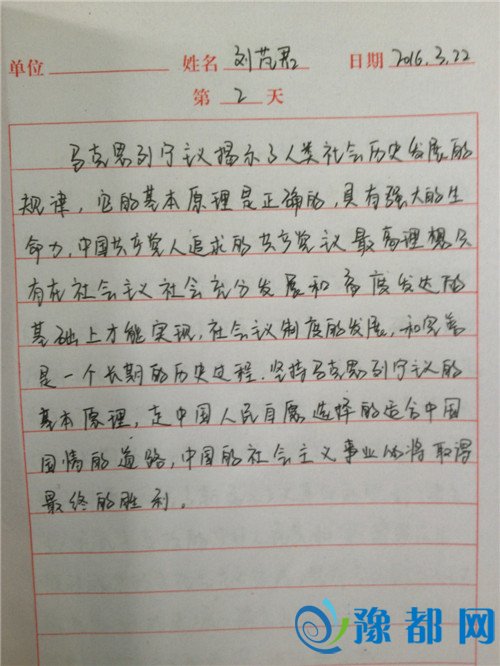 单位 姓名 刘芃君 日期 2016.3.22
第 2 天
马克思列宁议揭示了人类社会历史发展的
规律,它的基本原理是正确的,具有强大的生
命力,中国共产党人追求的共产党议最高理想只
有在社会议社会充分发展和高度发达的
基础上才能实现,社会议制度的发展,和完善
是一个长期的历史过程.坚持马克思列宁议的
基本原理,走中国人民自愿选择的适合中国
国情的道路,中国的社会主义事业必将取得
最终的胜利。
豫都网